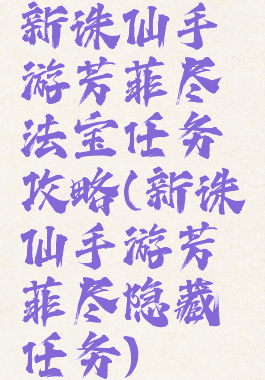 新诛仙手
游芳菲尽
法宝任务
攻略(新诛
仙手游芳
菲尽隐藏
任务)